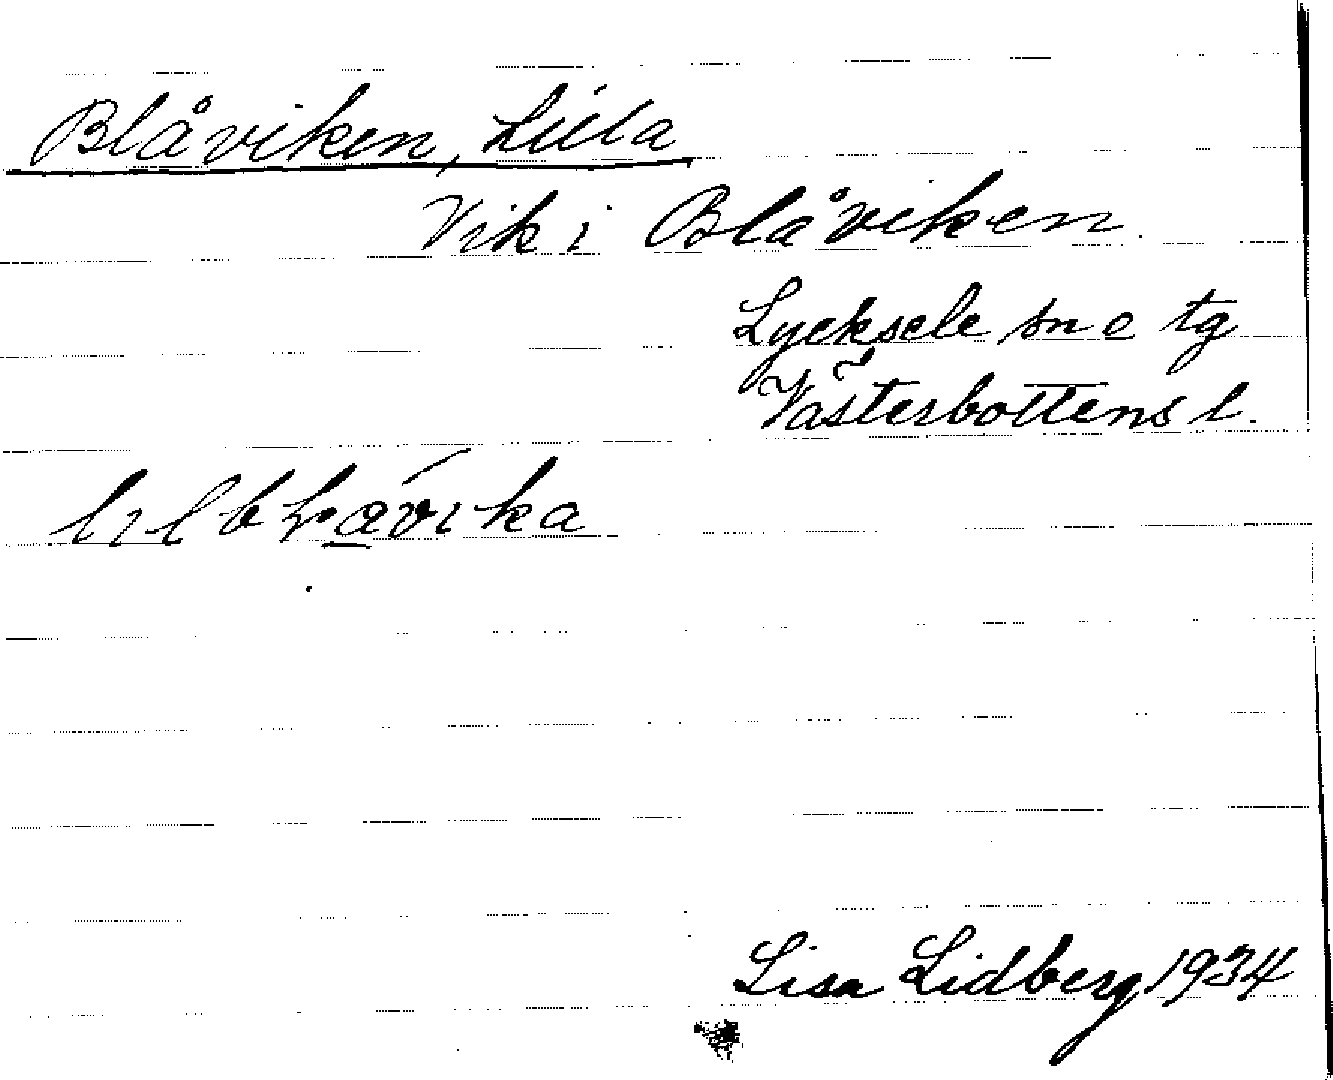 Blåviken, Lilla
Vik i Blåviken.
Lycksele sn o tg
Västerbottens l.
Lisa Lidberg 1934